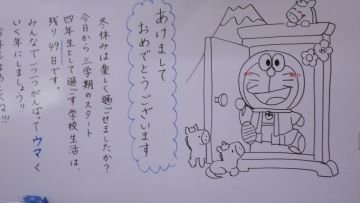 あけまして
おめでとうございます
冬休みは楽しく過ごせましたか？
今日から三学期のスタート
四年生として過ごす学校生活は、
残り49日です。
みんなで一つ一つがんばってウマく
いく年にしましょう!!